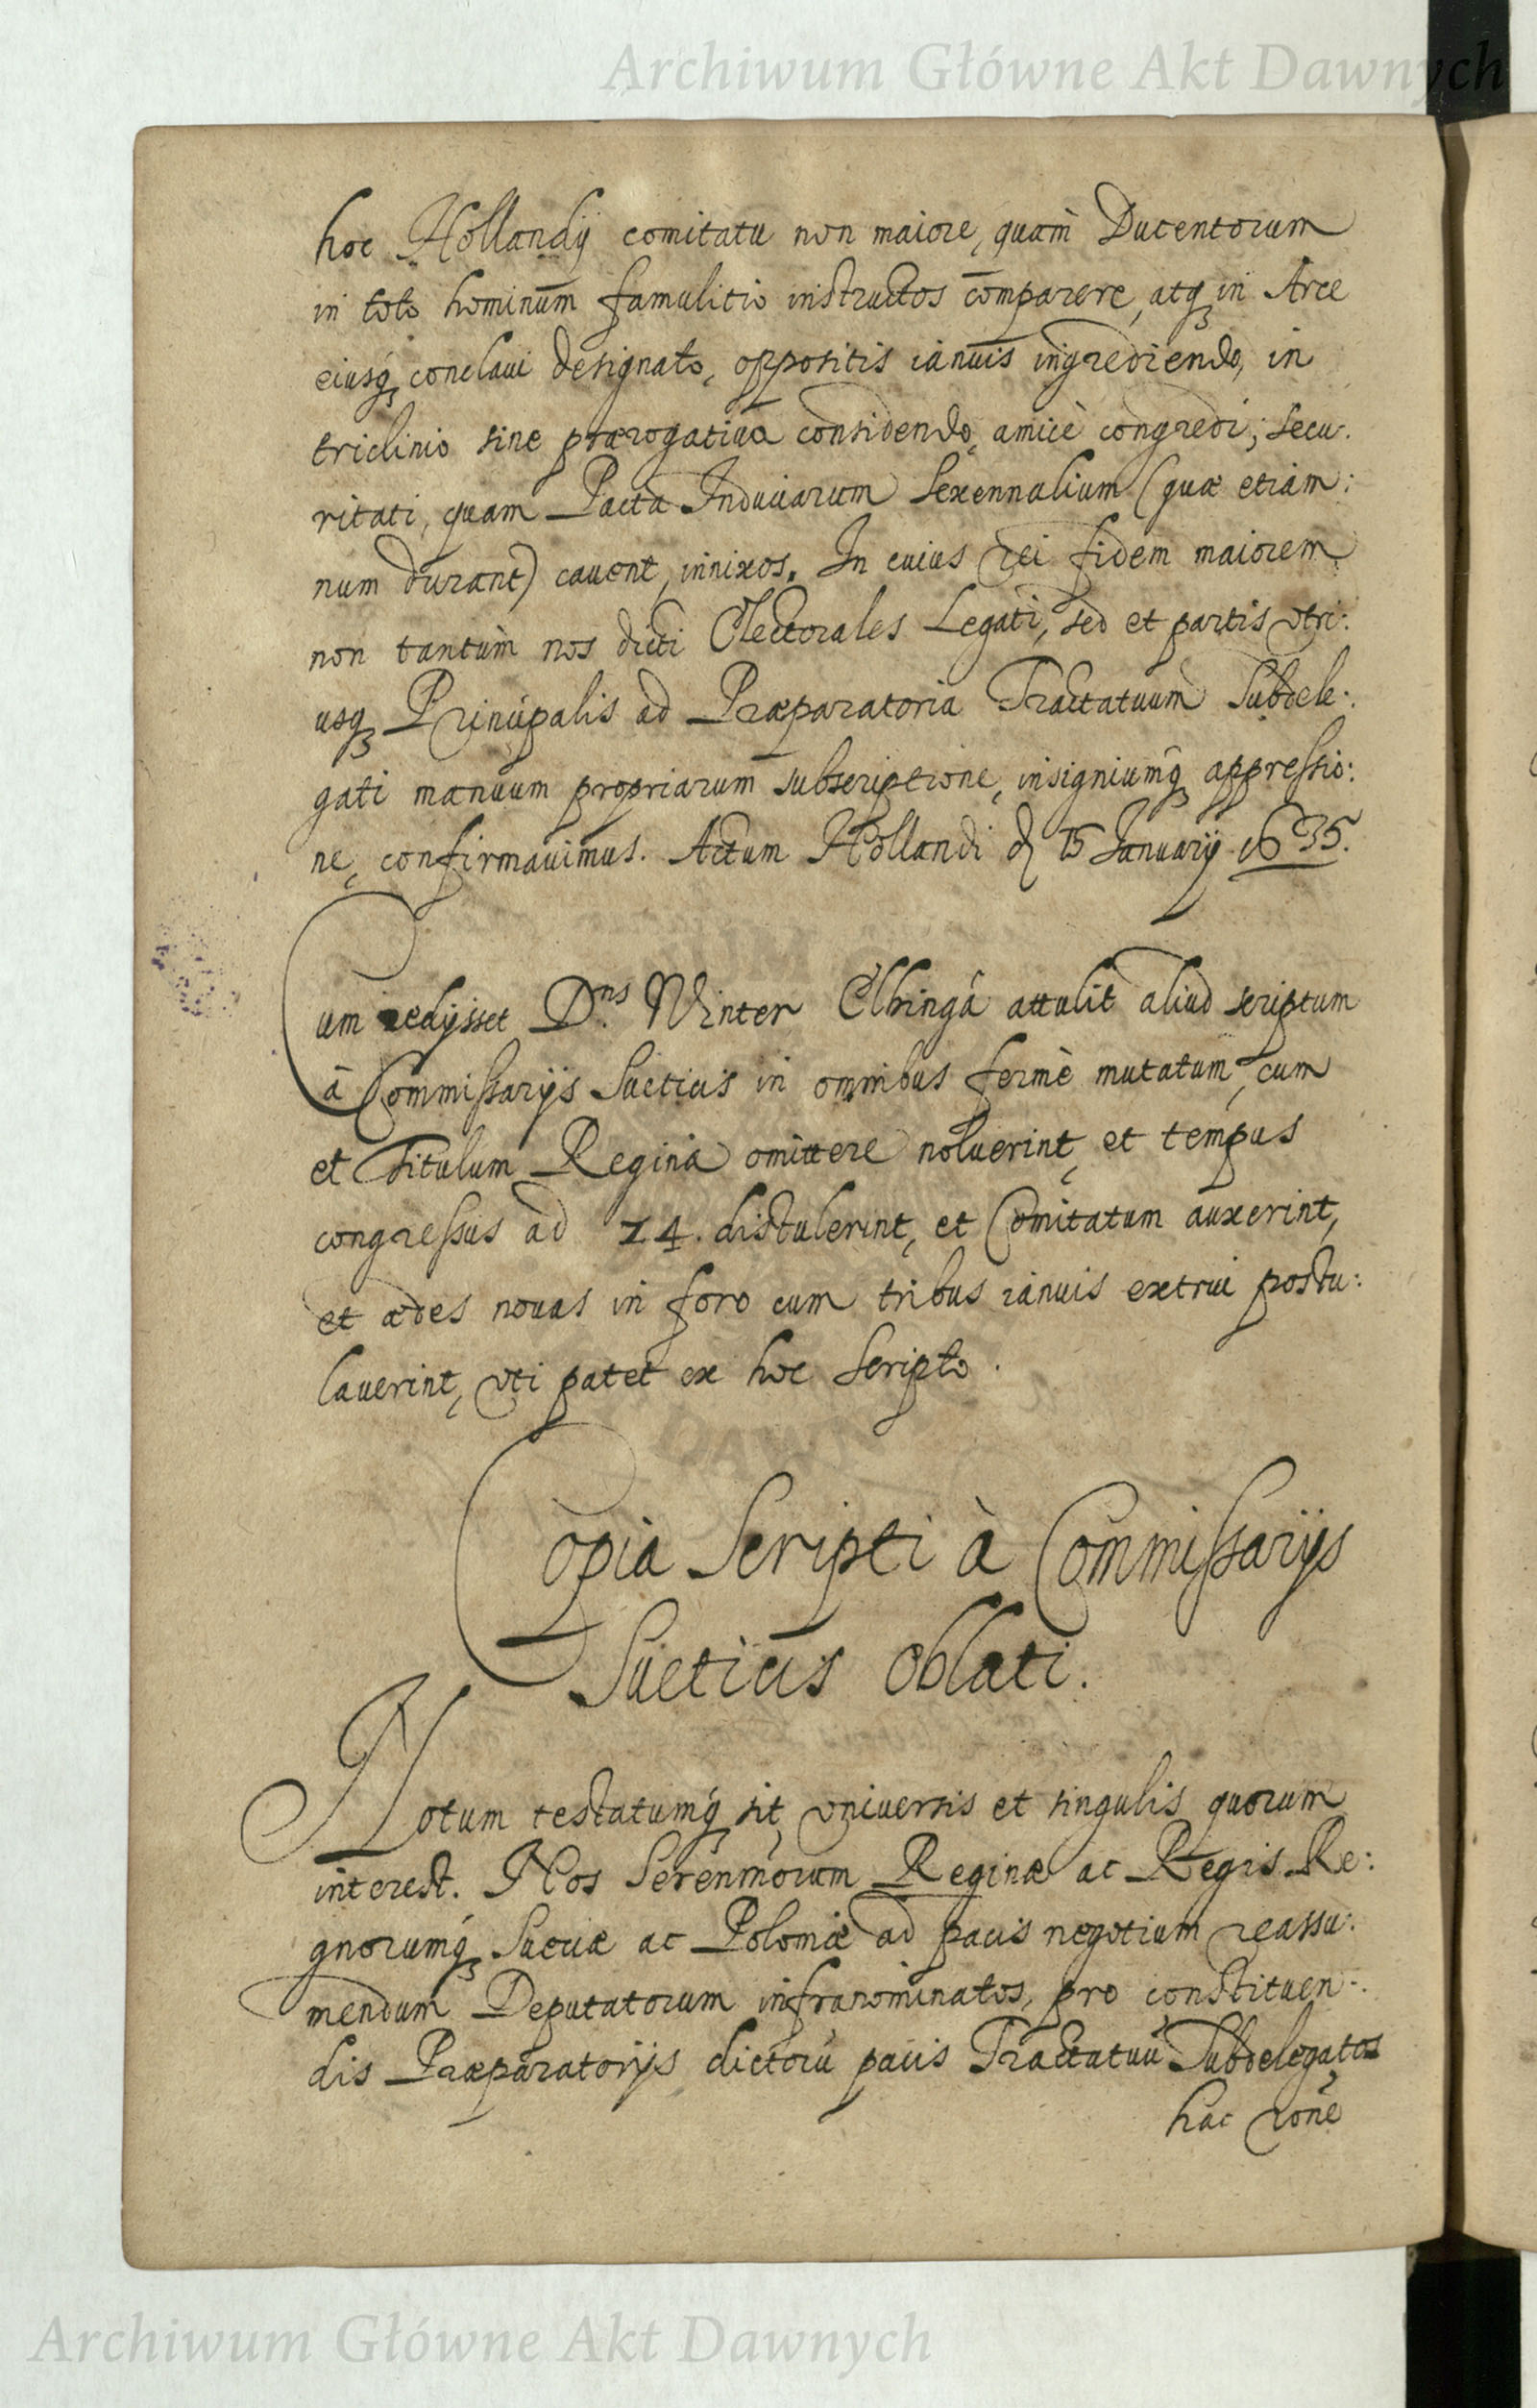 Archiwum Główne Akt Dawnych
hoc Hollandij comitatu non maiore, quàm Ducentorum
in toto hominum famulitio instructos comparere, atq in Arce
eiusq conclaui designato, oppositis ianuis ingrediendo, in
triclinio sine prærogatiua considendo, amicè congredi; secu:
ritati, quam Pacta Induciarum Sexennalium (quæ etiam:
num durant) cauent, innixos. In cuius rei fidem maiorem
non tantùm nos dicti Electorales Legati, sed et partis vtri:
usq Principalis ad Præparatoria Tractatuum Subdele:
gati manuum propriarum subscriptione, insigniumq appressio:
ne, confirmauimus. Actum Hollandi d 15 January 1635.
Cum redijsset Dns. Winter Elbingâ attulit aliud scriptum
â Commissarijs Sueticis in omnibus fermè mutatum, cum
et Titulum Regina omittere noluerint, et tempus
congressus ad 24. distulerint, et Comitatum auxerint,
et ædes nouas in foro cum tribus ianuis extrui postu:
lauerint, vti patet ex hoc Scripto.
Copia Scripti à Commissarijs
Sueticis Oblati.
Notum testatumq sit, vniuersis et singulis quorum
interest. Nos Serenmorum Reginæ ac Regis Re:
gnorumq Sueciæ ac Poloniæ ad pacis negotium reassu:
mendum Deputatorum infranominatos, pro constituen:
dis Præparatorijs dictorū pacis Tractatuū Subdelegatos
hac rone
Archiwum Główne Akt Dawnych